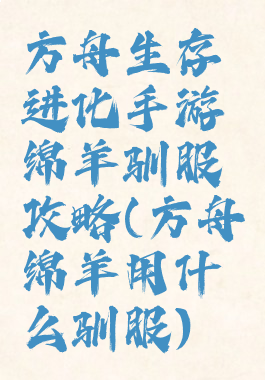 方舟生存
进化手游
绵羊驯服
攻略(方舟
绵羊用什
么驯服)